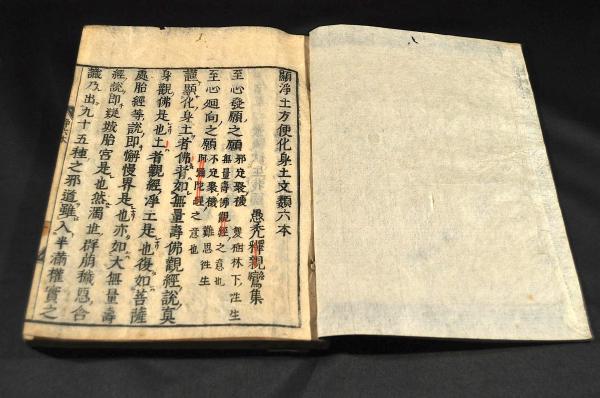 顯淨土方便化身土文類六本
愚禿釋親鸞集
至心發願之願 邪定聚機 雙樹林下往生
無量壽佛觀經之意也
至心廻向之願 不定聚機 難思往生
阿彌陀經之意也
謹顯化身土者佛者如無量壽佛觀經說眞
身觀佛是也土者觀經淨土是也復如菩薩
處胎經等說即懈慢界是也亦如大無量壽
經說即疑城胎宮是也然濁世群萠穢惡含
識乃出九十五種之邪道雖入半滿權實之